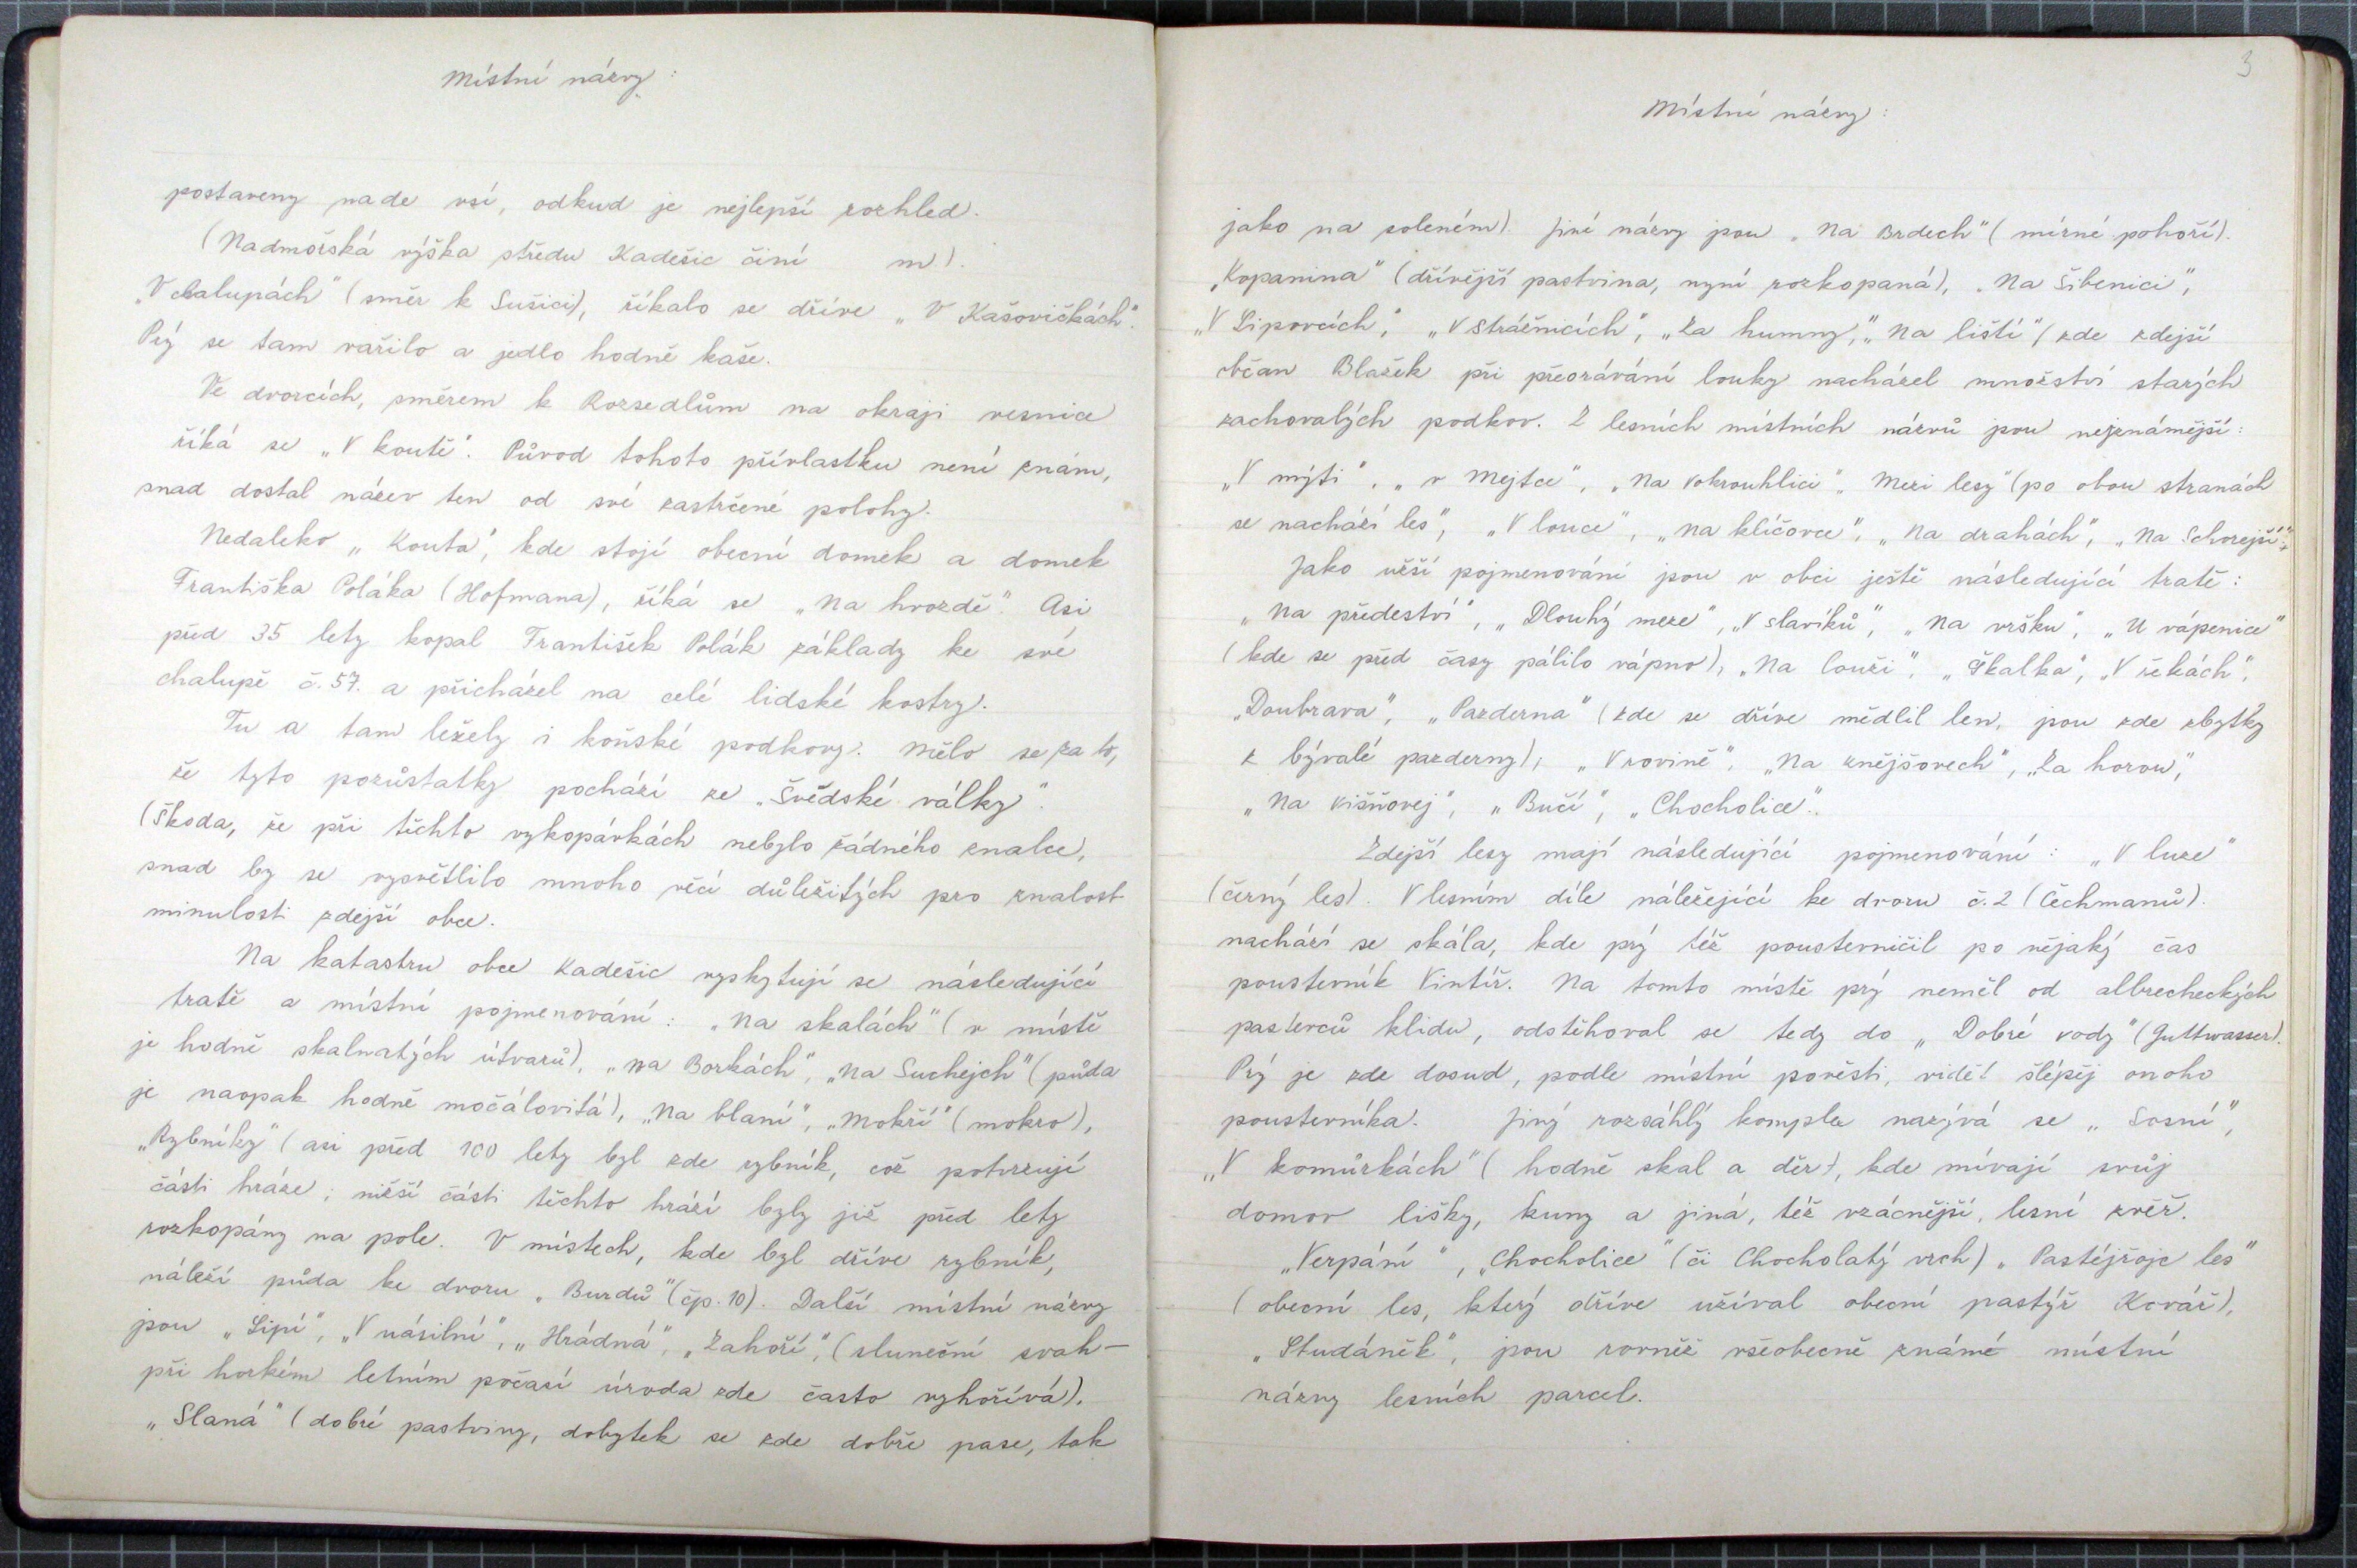 Místní názvy:
postaveny nade vsí, odkud je nejlepší rozhled.
(Nadmořská výška středu Kadešic činí m).
„V chalupách" (směr k Sušici), říkalo se dříve „V Kašovičkách".
Prý se tam vařilo a jedlo hodně kaše.
Ve dvorcích, směrem k Rozsedlům na okraji vesnice
říká se „V koutě". Původ tohoto přívlastku není znám,
snad dostal název ten od své zastrčené polohy.
Nedaleko „Kouta", kde stojí obecní domek a domek
Františka Poláka (Hofmana), říká se „Na hvozdě". Asi
před 35 lety kopal František Polák základy ke své
chalupě č. 57. a přicházel na celé lidské kostry.
Tu a tam ležely i koňské podkovy. Mělo se za to,
že tyto pozůstatky pochází ze „Švédské války".
(Škoda, že při těchto vykopávkách nebylo žádného znalce,
snad by se vysvětlilo mnoho věcí důležitých pro znalost
minulosti zdejší obce.
Na katastru obce Kadešic vyskytují se následující
tratě a místní pojmenování: „Na skalách" (v místě
je hodně skalnatých útvarů), „na Borkách", „Na Suchejch" (půda
je naopak hodně močálovitá), „Na blaní", „Mokří" (mokro),
„Rybníky" (asi před 100 lety byl zde rybník, což potvrzují
části hráze; nižší části těchto hrází byly již před lety
rozkopány na pole. V místech, kde byl dříve rybník,
náleží půda ke dvoru „Burdů" (čp. 10). Další místní názvy
jsou „Lipí", „V násilní", „Hrádná", „Zahoří", (sluneční svah –
při horkém letním počasí úroda zde často vyhořívá).
„Slaná" (dobré pastviny, dobytek se zde dobře pase, tak
3
Místní názvy:
jako na soleném). Jiné názvy jsou „Na Brdech" (mírné pohoří).
„Kopanina" (dřívější pastvina, nyní rozkopaná), „Na Šibenici",
„V Lipovcích", „V Strážnicích", „Za humny", „Na liští" (zde zdejší
občan Blažek při přeorávání louky nacházel množství starých
zachovalých podkov. Z lesních místních názvů jsou nejznámější:
„V mýti", „v Mejtce", „Na vokrouhlici" „Mezi lesy" (po obou stranách
se nachází les", „V louce", „Na klíčovce", „Na drahách", „Na Schorejší".
Jako užší pojmenování jsou v obci ještě následující tratě:
„Na předeství", „Dlouhý meze", „V slavíků", „Na vršku", „U vápenice"
(kde se před časy pálilo vápno), „Na louži", „Skalka", „V řekách",
„Doubrava", „Pazderna" (zde se dříve mědlil len, jsou zde zbytky
z bývalé pazderny), „V rovině", „Na knějšovech", „Za horou",
„Na višňovej", „Bučí", „Chocholice".
Zdejší lesy mají následující pojmenování: „V luze"
(černý les). V lesním díle náležející ke dvoru č. 2 (Čechmanů).
nachází se skála, kde prý též poustevničil po nějaký čas
poustevník Vintíř. Na tomto místě prý neměl od albrecheckých
pasterců klidu, odstěhoval se tedy do „Dobré vody" (Guttwasser).
Prý je zde dosud, podle místní pověsti, vidět šlépěj onoho
poustevníka. Jiný rozsáhlý komplex nazývá se „Sosní",
„V komůrkách" (hodně skal a děr), kde mívají svůj
domov lišky, kuny a jiná, též vzácnější, lesní zvěř.
„Verpání", „Chocholice" (či Chocholatý vrch) „Pastéjřoje les"
(obecní les, který dříve užíval obecní pastýř Kovář),
„Studáněk", jsou rovněž všeobecně známé místní
názvy lesních parcel.